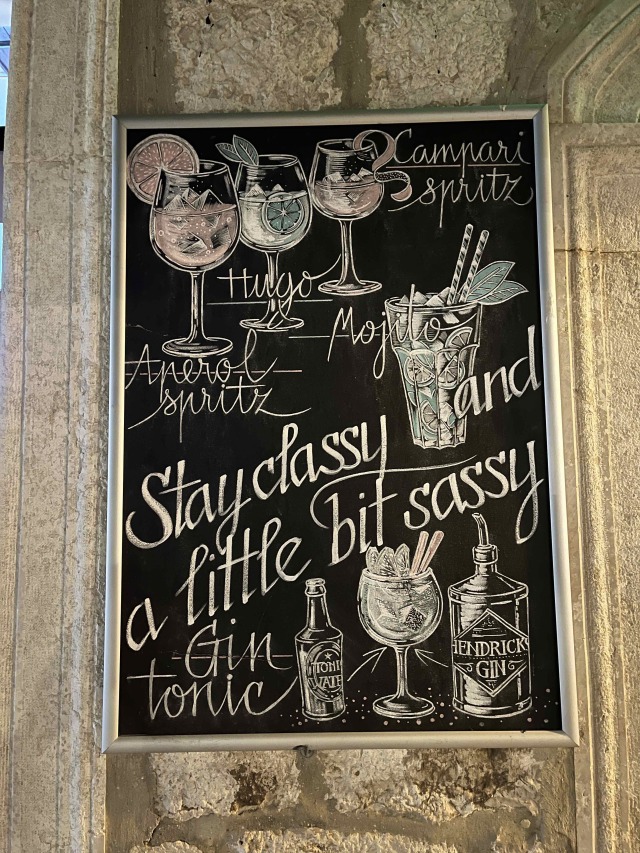 Campari
spritz
Hugo
Mojito
Aperol
spritz
Stay classy and
a little bit sassy
Gin
tonic
TONI
WATE
HENDRICK'S
GIN